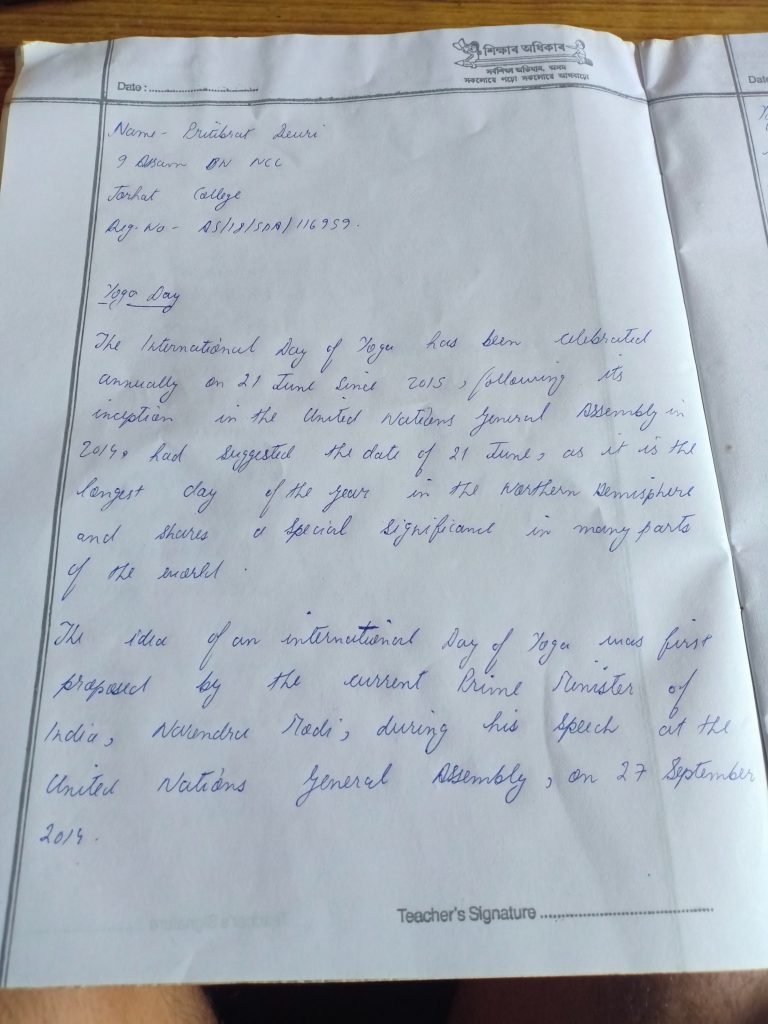 শিক্ষাৰ অধিকাৰ
সৰ্বশিক্ষা অভিযান, অসম
সকলোৱে পঢ়ো সকলোৱে আগবাঢ়ো
Date :
Name - Pritibrat Deuri
9 Assam BN NCC
Jorhat College
Reg. No - AS/18/SDA/116959.
Yoga Day
The International Day of Yoga has been celebrated
annually on 21 June since 2015, following its
inception in the United Nations General Assembly in
2014. had suggested the date of 21 June, as it is the
longest day of the year in the Northern Hemisphere
and shares a special significance in many parts
of the world.
The idea of an international Day of Yoga was first
proposed by the current Prime Minister of
India, Narendra Modi, during his speech at the
United Nations General Assembly, on 27 September
2014.
Teacher's Signature